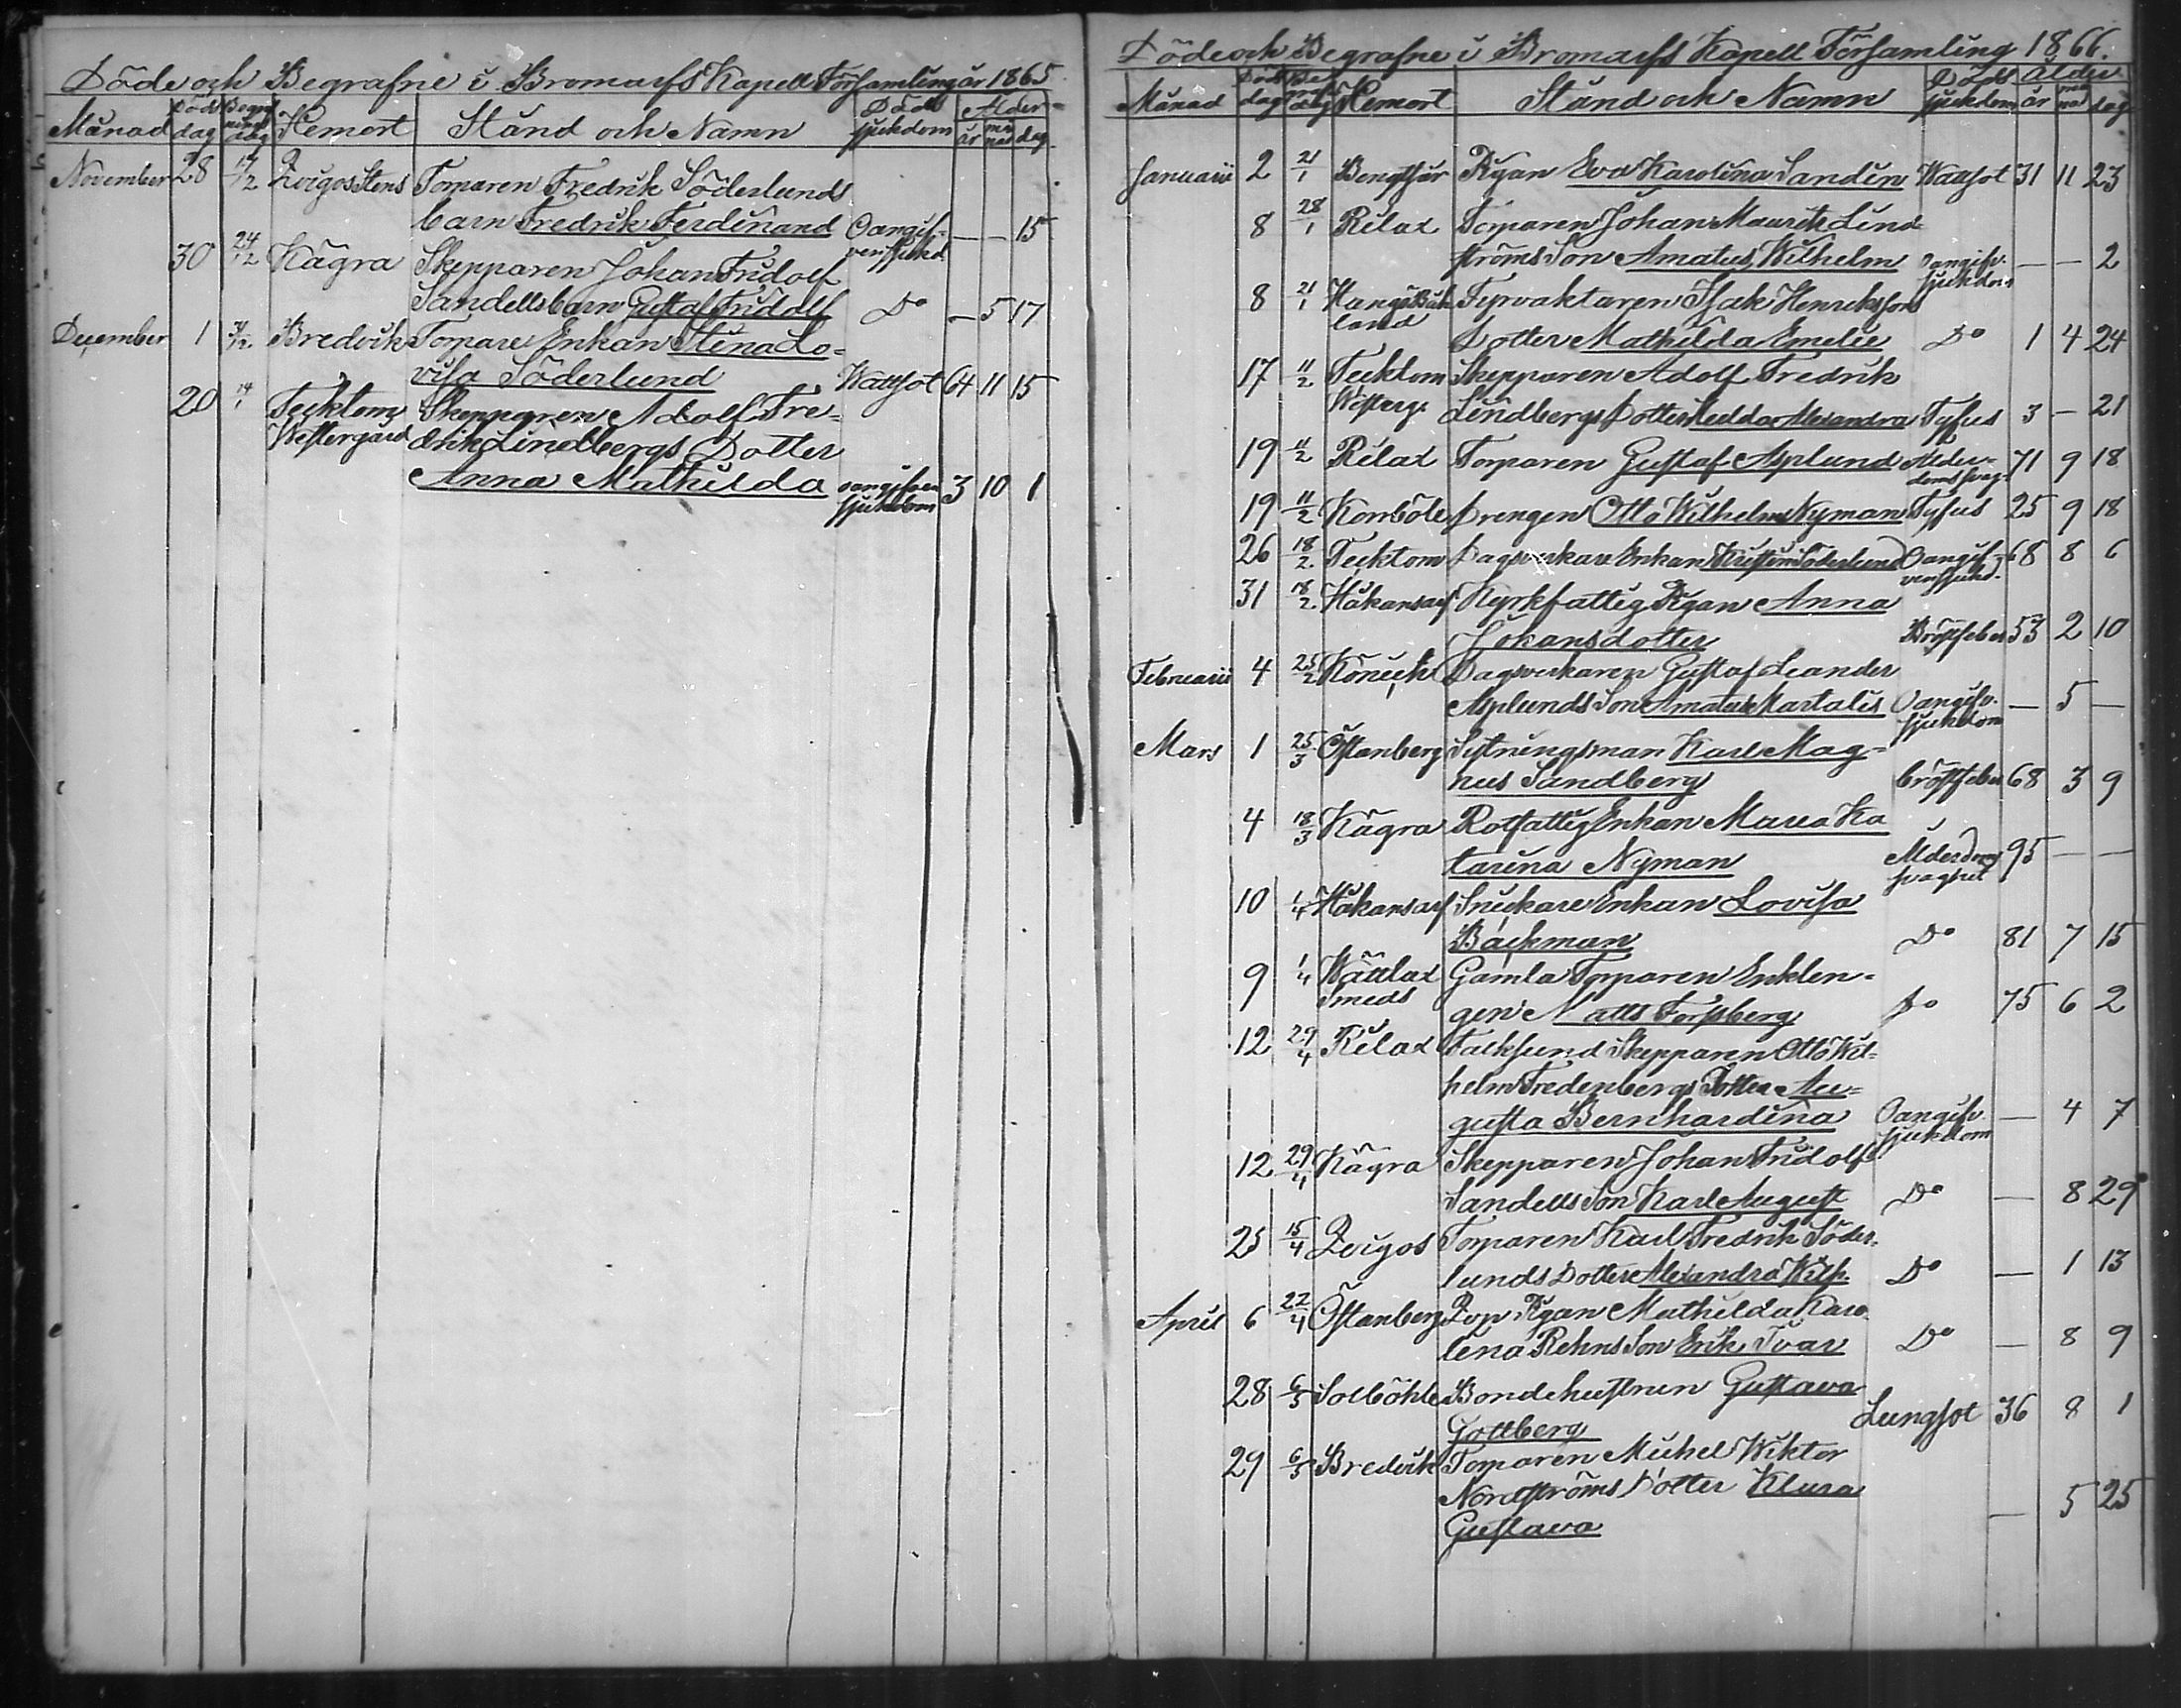 Döde och Begrafne i Bromarfs Kapell Församling år 1865
Månad Döds dag Begrafnings dag Hemort Stånd och Namn Döds sjukdom Ålder år månad dag
November 28 17/12 Zvigos Stens Torparen Fredrik Söderlunds
barn Fredrik Ferdinand Oangif- — — 15
ven sjukd.
30 24/12 Kägra Skepparen Johan Fridolf
Sandells barn Gustaf Fridolf Do — 5 17
December 1 31/12 Bredvik Torpare Enkan Stina Lo-
visa Söderlund Wattsot 64 11 15
20 14/1 Tecktom Skepparen Adolf Fre-
Westergård drik Lindbergs Dotter
Anna Mathilda oangifven 3 10 1
sjukdom
Döde och Begrafne i Bromarfs Kapell Församling 1866.
Månad Döds dag Begrafn. dag Hemort Stånd och Namn Döds sjukdom Ålder år månad dag
Januarii 2 21/1 Bengtsår Pigan Eva Karolina Sandin Wattsot 31 11 23
8 28/1 Rilax Torparen Johan Maurits Lind-
ströms Son Amatus Wilhelm oangifv. — — 2
sjukdom
8 21/1 Hangö Fyrvaktaren Isak Henrikssons
land Dotter Mathilda Emelie Do 1 4 24
17 11/2 Tecktom Skepparen Adolf Fredrik
Westerg. Lindbergs Dotter Hedda Alexandra Tyfus 3 — 21
19 11/2 Rilax Torparen Gustaf Asplund Ålder- 71 9 18
doms svag.
19 11/2 Korsböle Drengen Otto Wilhelm Nyman Tyfus 25 9 18
26 18/2 Tecktom Dagsverkare Enkan Kristin Söderlund Oangif- 68 8 6
ven sjukd.
31 18/2 Håkansarf Kyrkfattig Pigan Anna
Johansdotter Bröstfeber 53 2 10
Februarii 4 25/2 Dagsverkaren Gustaf Leander
Asplunds Son Amatus Martalis Oangifv. — 5 —
sjukdom
Mars 1 25/3 Östanberg Sytningsman Karl Mag-
nus Sandberg bröstfeber 68 3 9
4 18/3 Kägra Rotfattig Enkan Maria Ka
tarina Nyman Ålderdoms 95 — —
svaghet
10 1/4 Håkansarf Snickare Enkan Lovisa
Bäckman Do 81 7 15
9 1/4 Wättlax Gamla Torparen Enklin-
Smeds gen Matts Forsberg Do 75 6 2
12 29/4 Rilax Falksund Skepparen Otto Wil-
helm Fredenbergs Dotter Au-
gusta Bernhardina Oangifv. — 4 7
sjukdom
12 29/4 Kägra Skepparen Johan Fridolf
Sandells Son Karl August Do — 8 29
25 15/4 Zvigos Torparen Karl Fredrik Söder-
lunds Dotter Alexandra Wilh. Do — 1 13
April 6 22/4 Östanberg Pigan Mathilda Karo-
lena Rehns Son Erik Ivar Do — 8 9
28 6/5 Solböhle Bondehustrun Gustava
Gottberg Lungsot 36 8 1
29 6/5 Bredvik Torparen Michel Wiktor
Nordströms Dotter Klara
Gustava — 5 25